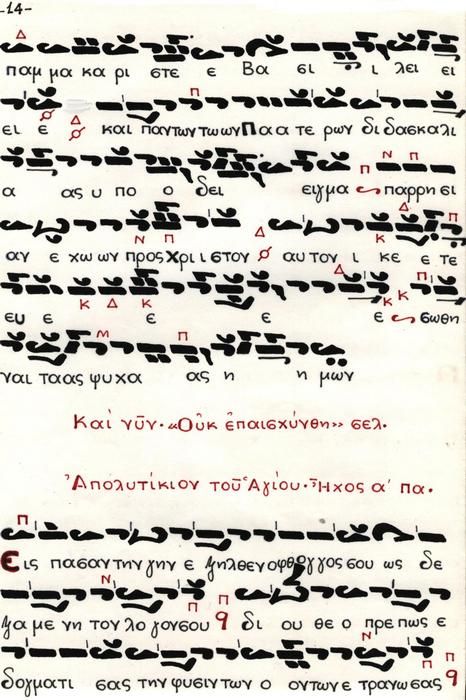 -14-
Δ
παμ μα κα ρι στε ε Βα σι ι λει ει
Π
ει ε Δ και παντωντωωνΠα α τε ρων δι δασκαλι
Π Ν Π
α ας υ πο ο δει ειγμα παρρησι
Δ
Ν Π Δ Κ Π
αν ε χω ων προς Χρι ι στον αυ τον ι κε ε τε
Δ Π
Κ Δ Κ Κ Κ
ευ ε ε ε ε σωθη
Μ Π
ναι ταας ψυχα ας η η μων
Καὶ νῦν· «Οὐκ ἐπαισχύνθη» σελ.
Ἀπολυτίκιον τοῦ Ἁγίου· Ἦχος α´ πα.
Π
Εις πασαν την γην ε ξηλθεν ο φθογγος σου ως δε
Ν Π Π
ξα με νη τον λο γον σου q δι ου θε ο πρε πως ε
Ν Π Π
δογματι σας την φυσιν των ο οντων ε τρανωσας q